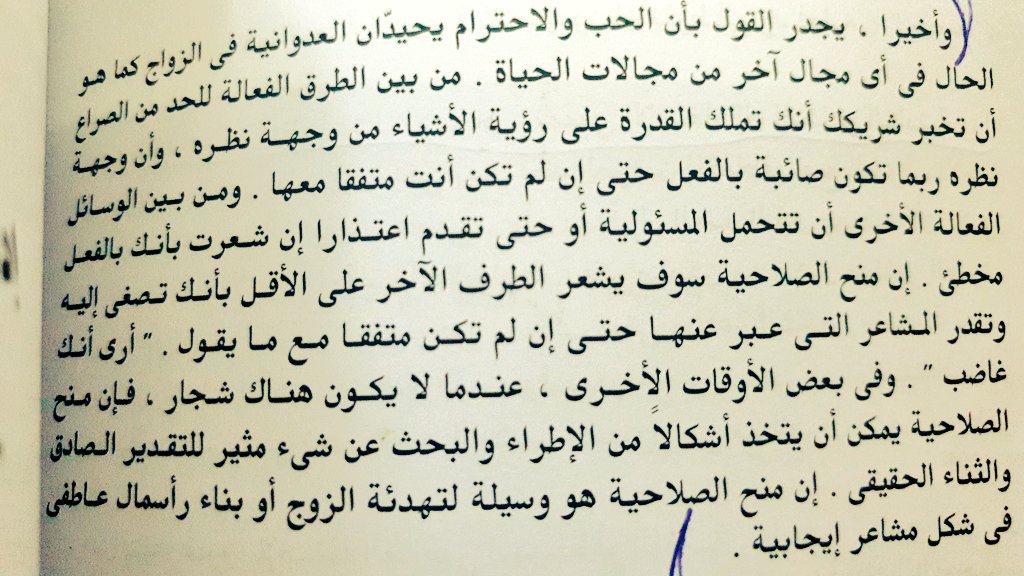 وأخيرا ، يجدر القول بأن الحب والاحترام يحيدّان العدوانية فى الزواج كما هو
الحال فى أى مجال آخر من مجالات الحياة . من بين الطرق الفعالة للحد من الصراع
أن تخبر شريكك أنك تملك القدرة على رؤية الأشياء من وجهة نظره ، وأن وجهة
نظره ربما تكون صائبة بالفعل حتى إن لم تكن أنت متفقا معها . ومن بين الوسائل
الفعالة الأخرى أن تتحمل المسئولية أو حتى تقدم اعتذارا إن شعرت بأنك بالفعل
مخطئ . إن منح الصلاحية سوف يشعر الطرف الآخر على الأقل بأنك تصغى إليه
وتقدر المشاعر التى عبر عنها حتى إن لم تكن متفقا مع ما يقول . " أرى أنك
غاضب " . وفى بعض الأوقات الأخرى ، عندما لا يكون هناك شجار ، فإن منح
الصلاحية يمكن أن يتخذ أشكالاً من الإطراء والبحث عن شىء مثير للتقدير الصادق
والثناء الحقيقى . إن منح الصلاحية هو وسيلة لتهدئة الزوج أو بناء رأسمال عاطفى
فى شكل مشاعر إيجابية .